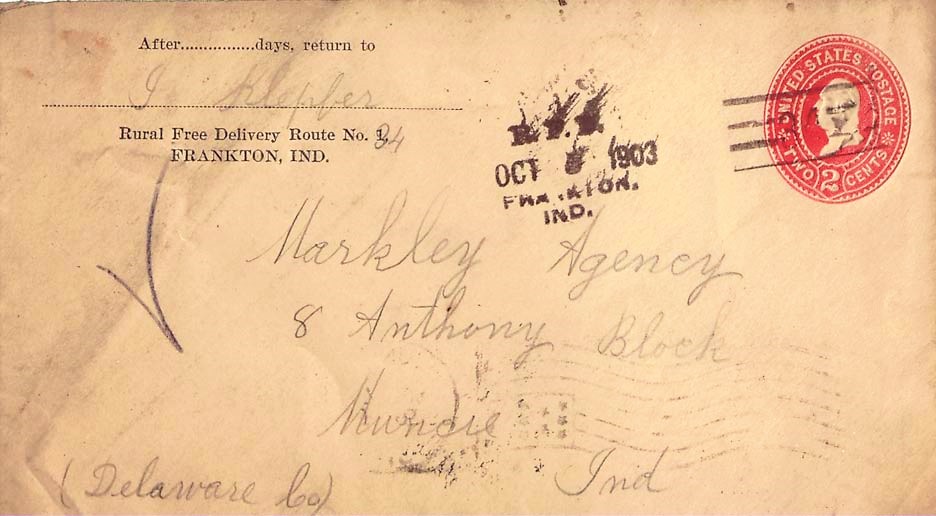 After...............days, return to
Klepfer
Rural Free Delivery Route No. 1, 34
FRANKTON, IND.
R.F.D.
OCT 1903
FRANKTON,
IND.
UNITED STATES POSTAGE
TWO 2 CENTS
Markley Agency
8 Anthony Block
Muncie
Ind
(Delaware Co)